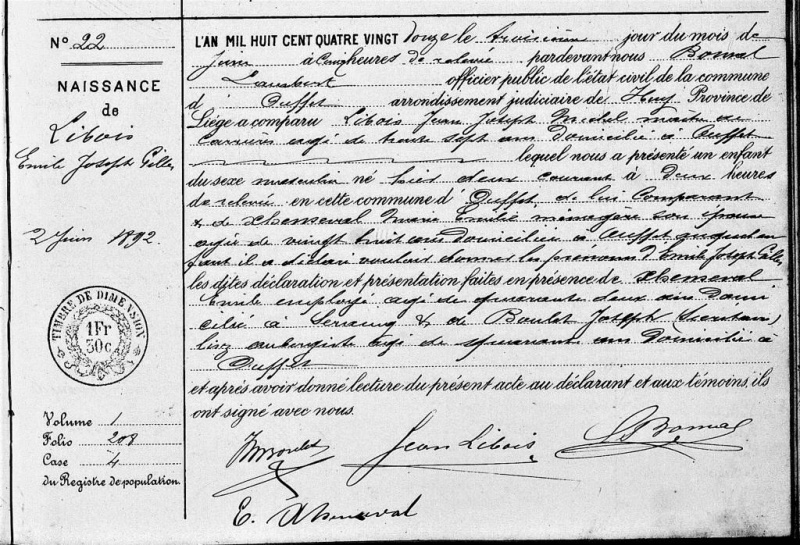 N° 22
NAISSANCE
de
Libois
Emile Joseph Gilles
2 Juin 1892.
TIMBRE DE DIMENSION
1Fr
30c
Volume 1
Folio 208
Case 4
du Registre de population.
L'AN MIL HUIT CENT QUATRE VINGT douze le troisième jour du mois de
Juin à cinq heures de relevée pardevant nous Bonval
Lambert officier public de l'état civil de la commune
d' Ouffet arrondissement judiciaire de Huy Province de
Liège a comparu Libois Jean Joseph Michel Maître de
carrières âgé de trente sept ans domicilié à Ouffet
lequel nous a présenté un enfant
du sexe masculin né hier deux courant à deux heures
de relevée en cette commune d'Ouffet, de lui Comparant
& de Xhenseval Marie Emilie ménagère son épouse
âgée de vingt huit ans domiciliée à Ouffet auquel en
fant il a déclaré vouloir donner les prénoms d'Emile Joseph Gilles
les dites déclaration et présentation faites en présence de Xhenseval
Emile employé âgé de quarante deux ans domi
cilié à Seraing & de Boulet Joseph
lisez aubergiste âgé de quarante ans domicilié à
Ouffet
et après avoir donné lecture du présent acte au déclarant et aux témoins, ils
ont signé avec nous.
Boulet Jean Libois Bonval
E. Xhenseval